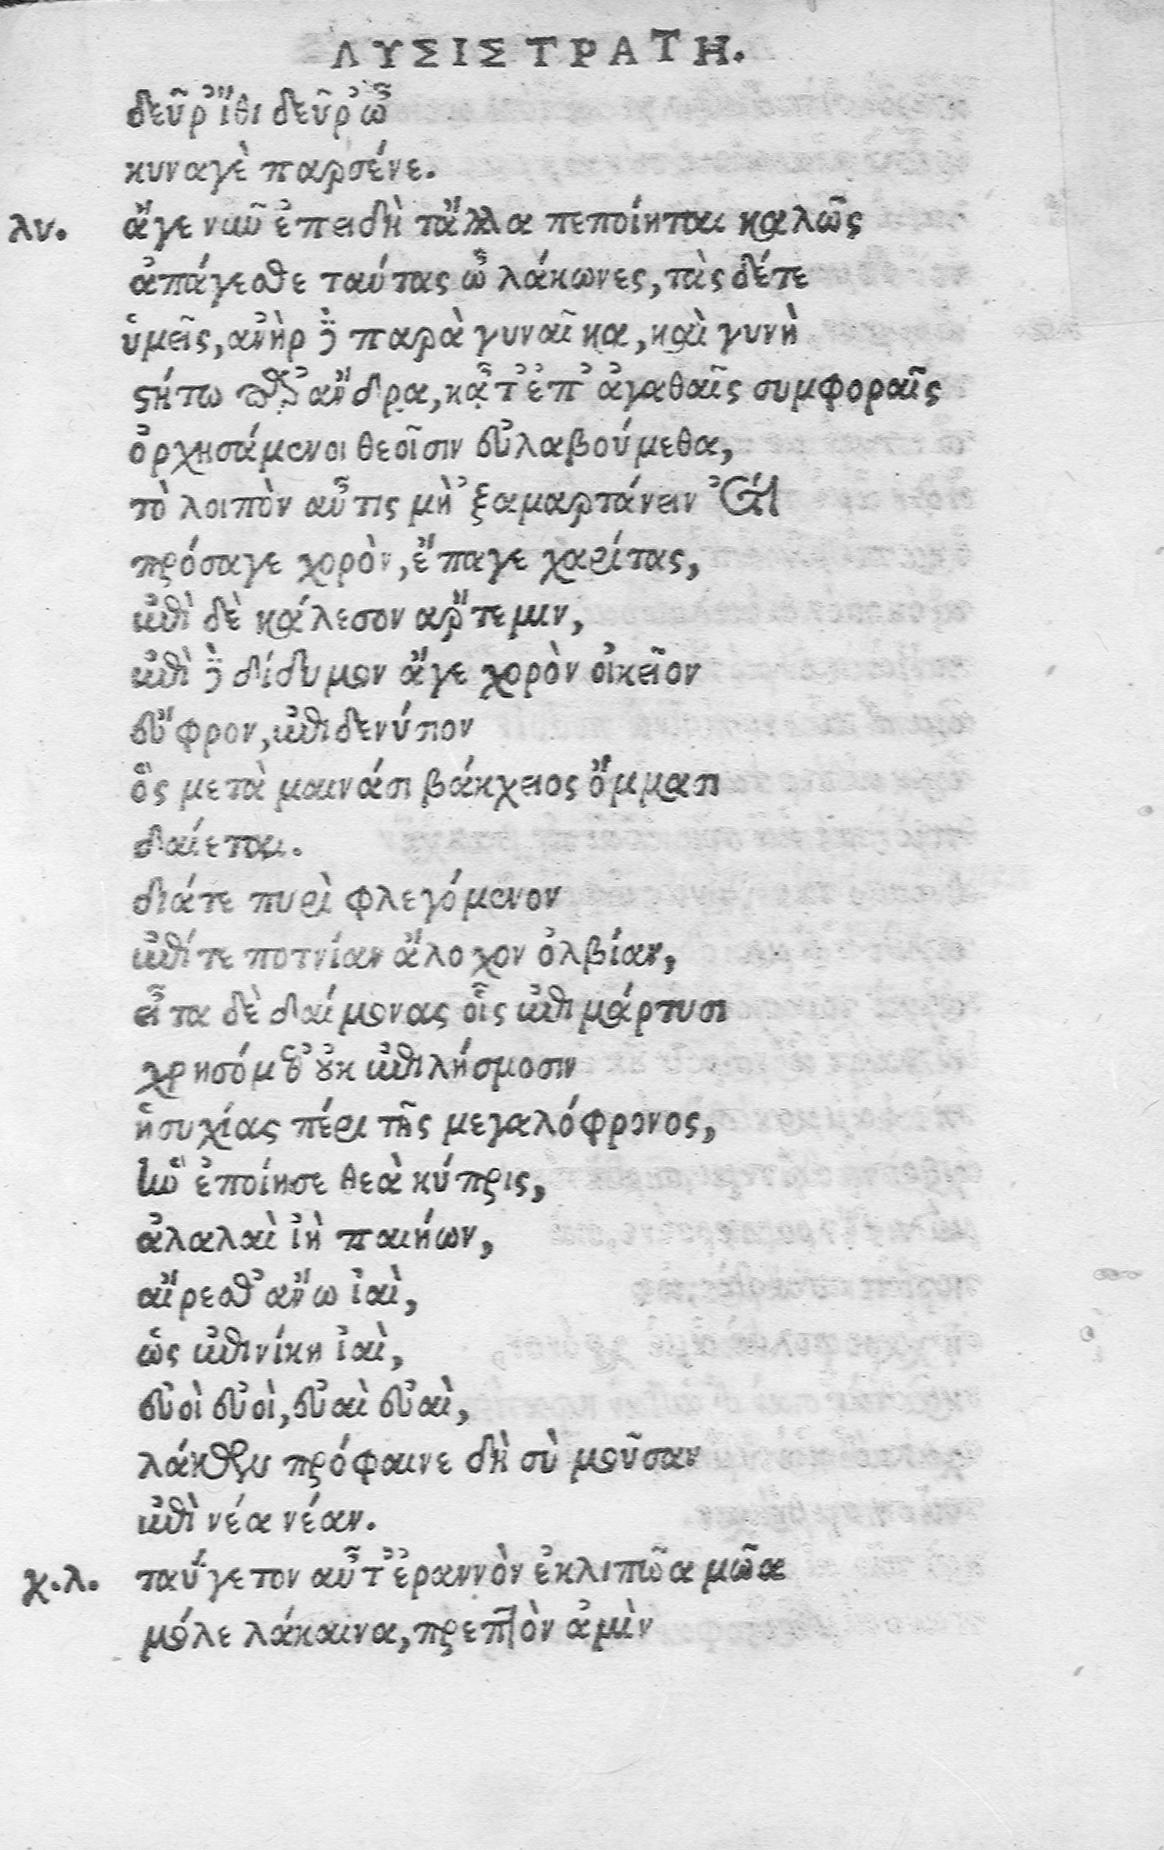 ΛΥΣΙΣΤΡΑΤΗ.
δεῦρ' ἴθι δεῦρ' ὦ
κυναγὲ παρσένε.
λυ. ἄγε νῦν ἐπειδὴ τἄλλα πεποίηται καλῶς
ἀπάγεσθε ταύτας ὦ λάκωνες, τὰς δέτε
ὑμεῖς, ἀνὴρ δὲ παρὰ γυναῖκα, καὶ γυνὴ
στήτω παρ' ἄνδρα, κᾆτ' ἐπ' ἀγαθαῖς συμφοραῖς
ὀρχησάμενοι θεοῖσιν εὐλαβούμεθα,
τὸ λοιπὸν αὖτις μὴ 'ξαμαρτάνειν ἔτι
πρόσαγε χορὸν, ἔπαγε χαρίτας,
ἐπὶ δὲ κάλεσον ἄρτεμιν,
ἐπὶ δὲ δίδυμον ἄγε χορὸν οἰκεῖον
εὔφρον, ἐπιδενύπον
ὃς μετὰ μαινάσι βάκχειος ὄμμασι
δαίεται.
διάτε πυρὶ φλεγόμενον
ἐπίτε ποτνίαν ἄλοχον ὀλβίαν,
εἶτα δὲ δαίμονας οἷς ἐπιμάρτυσι
χρησόμεθ' οὐκ ἐπιλήσμοσιν
ἡσυχίας πέρι τῆς μεγαλόφρονος,
ἣν ἐποίησε θεὰ κύπρις,
ἀλαλαὶ ἰὴ παιήων,
αἴρεσθ' ἄνω ἰαὶ,
ὡς ἐπινίκη ἰαὶ,
εὐοὶ εὐοὶ, εὐαὶ εὐαὶ,
πρόφαινε δὴ σὺ μοῦσαν
ἐπὶ νέα νέαν.
χ.λ. ταΰγετον αὖτ' ἐραννὸν ἐκλιπῶα μῶα
μόλε λάκαινα, πρεπτὸν ἁμὶν